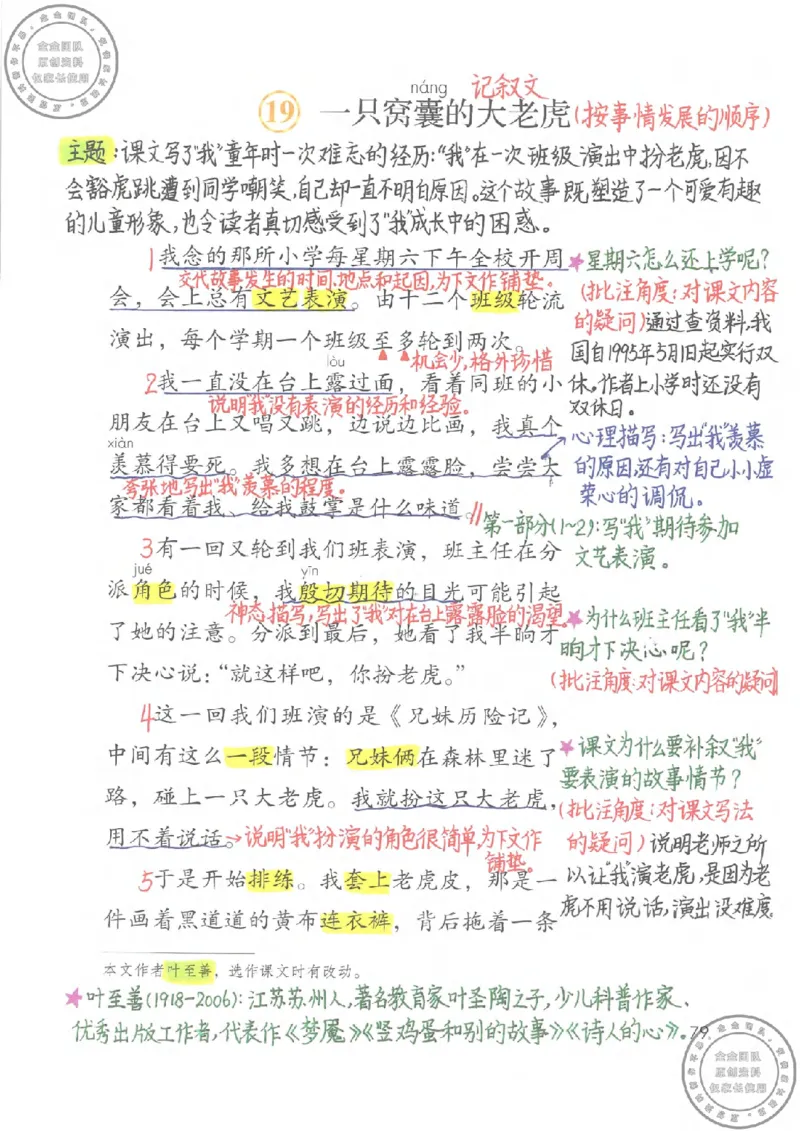 金金团队
原创资料
仅家长使用
náng
记叙文
19 一只窝囊的大老虎(按事情发展的顺序)
主题:课文写了"我"童年时一次难忘的经历:"我"在一次班级演出中扮老虎,因不
会豁虎跳遭到同学嘲笑,自己却一直不明白原因。这个故事既塑造了一个可爱有趣
的儿童形象,也令读者真切感受到了"我"成长中的困惑。
1我念的那所小学每星期六下午全校开周
交代故事发生的时间、地点和起因,为下文作铺垫。
会,会上总有文艺表演。由十二个班级轮流
演出,每个学期一个班级至多轮到两次。
机会少,格外珍惜
★星期六怎么还上学呢?
(批注角度:对课文内容
的疑问)通过查资料,我
国自1995年5月1日起实行双
休。作者上小学时还没有
双休日。
lòu
2我一直没在台上露过面,看着同班的小
说明"我"没有表演的经历和经验。
朋友在台上又唱又跳,边说边比画,我真个
xiàn
羡慕得要死。我多想在台上露露脸,尝尝大
夸张地写出"我"羡慕的程度。
家都看着我、给我鼓掌是什么味道。
心理描写:写出"我"羡慕
的原因,还有对自己小小虚
荣心的调侃。
第一部分(1~2):写"我"期待参加
文艺表演。
3有一回又轮到我们班表演,班主任在分
jué
yīn
派角色的时候,我殷切期待的目光可能引起
神态描写,写出了"我"对在台上露露脸的渴望。
了她的注意。分派到最后,她看了我半晌才
下决心说:“就这样吧,你扮老虎。”
★为什么班主任看了"我"半
晌才下决心呢?
(批注角度:对课文内容的疑问)
4这一回我们班演的是《兄妹历险记》,
中间有这么一段情节:兄妹俩在森林里迷了
路,碰上一只大老虎。我就扮这只大老虎,
用不着说话。→说明"我"扮演的角色很简单,为下文作
铺垫。
★课文为什么要补叙"我"
要表演的故事情节?
(批注角度:对课文写法
的疑问)说明老师之所
以让"我"演老虎,是因为老
虎不用说话,演出没难度。
5于是开始排练。我套上老虎皮,那是一
件画着黑道道的黄布连衣裤,背后拖着一条
本文作者叶至善,选作课文时有改动。
★叶至善(1918-2006):江苏苏州人,著名教育家叶圣陶之子,少儿科普作家、
优秀出版工作者,代表作《梦魇》《竖鸡蛋和别的故事》《诗人的心》。
79
金金团队
原创资料
仅家长使用